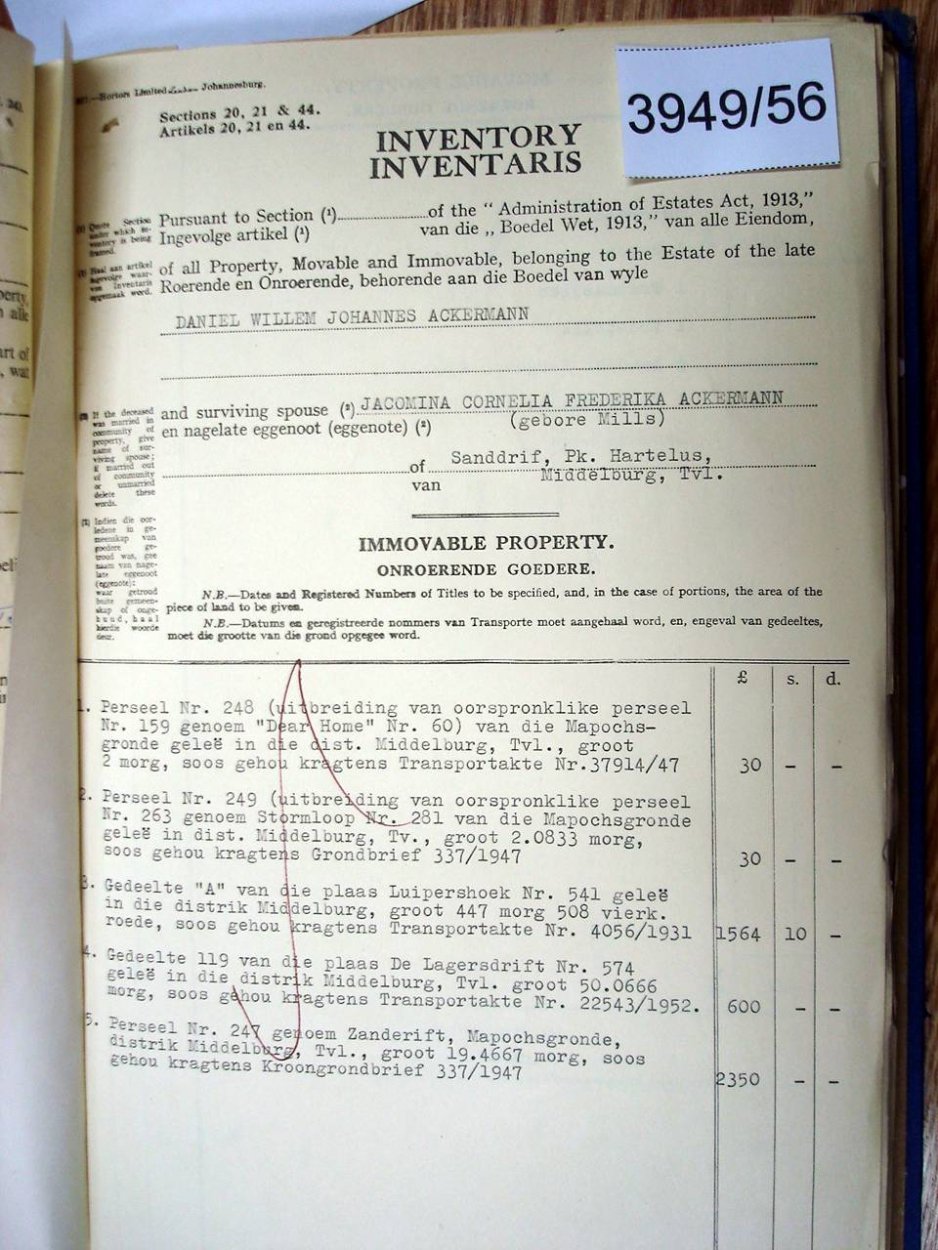 Hortors Limited Johannesburg.
3949/56
Sections 20, 21 & 44.
Artikels 20, 21 en 44.
INVENTORY
INVENTARIS
Pursuant to Section (¹)..............of the “ Administration of Estates Act, 1913,”
Ingevolge artikel (¹) van die „ Boedel Wet, 1913,” van alle Eiendom,
of all Property, Movable and Immovable, belonging to the Estate of the late
Roerende en Onroerende, behorende aan die Boedel van wyle
DANIEL WILLEM JOHANNES ACKERMANN
and surviving spouse (²) JACOMINA CORNELIA FREDERIKA ACKERMANN
en nagelate eggenoot (eggenote) (²) (gebore Mills)
of Sanddrif, Pk. Hartelus,
van Middelburg, Tvl.
If the deceased
was married in
community of
property, give
name of sur-
viving spouse;
if married out
of community
or unmarried
delete these
words.
Indien die oor-
ledene in ge-
meenskap van
goedere ge-
troud was, gee
naam van nage-
late eggenoot
(eggenote);
waar getroud
buite gemeen-
skap of onge-
huud, haal
hierdie woorde
deur.
IMMOVABLE PROPERTY.
ONROERENDE GOEDERE.
N.B.—Dates and Registered Numbers of Titles to be specified, and, in the case of portions, the area of the
piece of land to be given.
N.B.—Datums en geregistreerde nommers van Transporte moet aangehaal word, en, engeval van gedeeltes,
moet die grootte van die grond opgegee word.
£ s. d.
1. Perseel Nr. 248 (uitbreiding van oorspronklike perseel
Nr. 159 genoem "Dear Home" Nr. 60) van die Mapochs-
gronde geleë in die dist. Middelburg, Tvl., groot
2 morg, soos gehou kragtens Transportakte Nr.37914/47 30 - -
2. Perseel Nr. 249 (uitbreiding van oorspronklike perseel
Nr. 263 genoem Stormloop Nr. 281 van die Mapochsgronde
geleë in dist. Middelburg, Tv., groot 2.0833 morg,
soos gehou kragtens Grondbrief 337/1947 30 - -
3. Gedeelte "A" van die plaas Luipershoek Nr. 541 geleë
in die distrik Middelburg, groot 447 morg 508 vierk.
roede, soos gehou kragtens Transportakte Nr. 4056/1931 1564 10 -
4. Gedeelte 119 van die plaas De Lagersdrift Nr. 574
geleë in die distrik Middelburg, Tvl. groot 50.0666
morg, soos gehou kragtens Transportakte Nr. 22543/1952. 600 - -
5. Perseel Nr. 247 genoem Zanderift, Mapochsgronde,
distrik Middelburg, Tvl., groot 19.4667 morg, soos
gehou kragtens Kroongrondbrief 337/1947 2350 - -